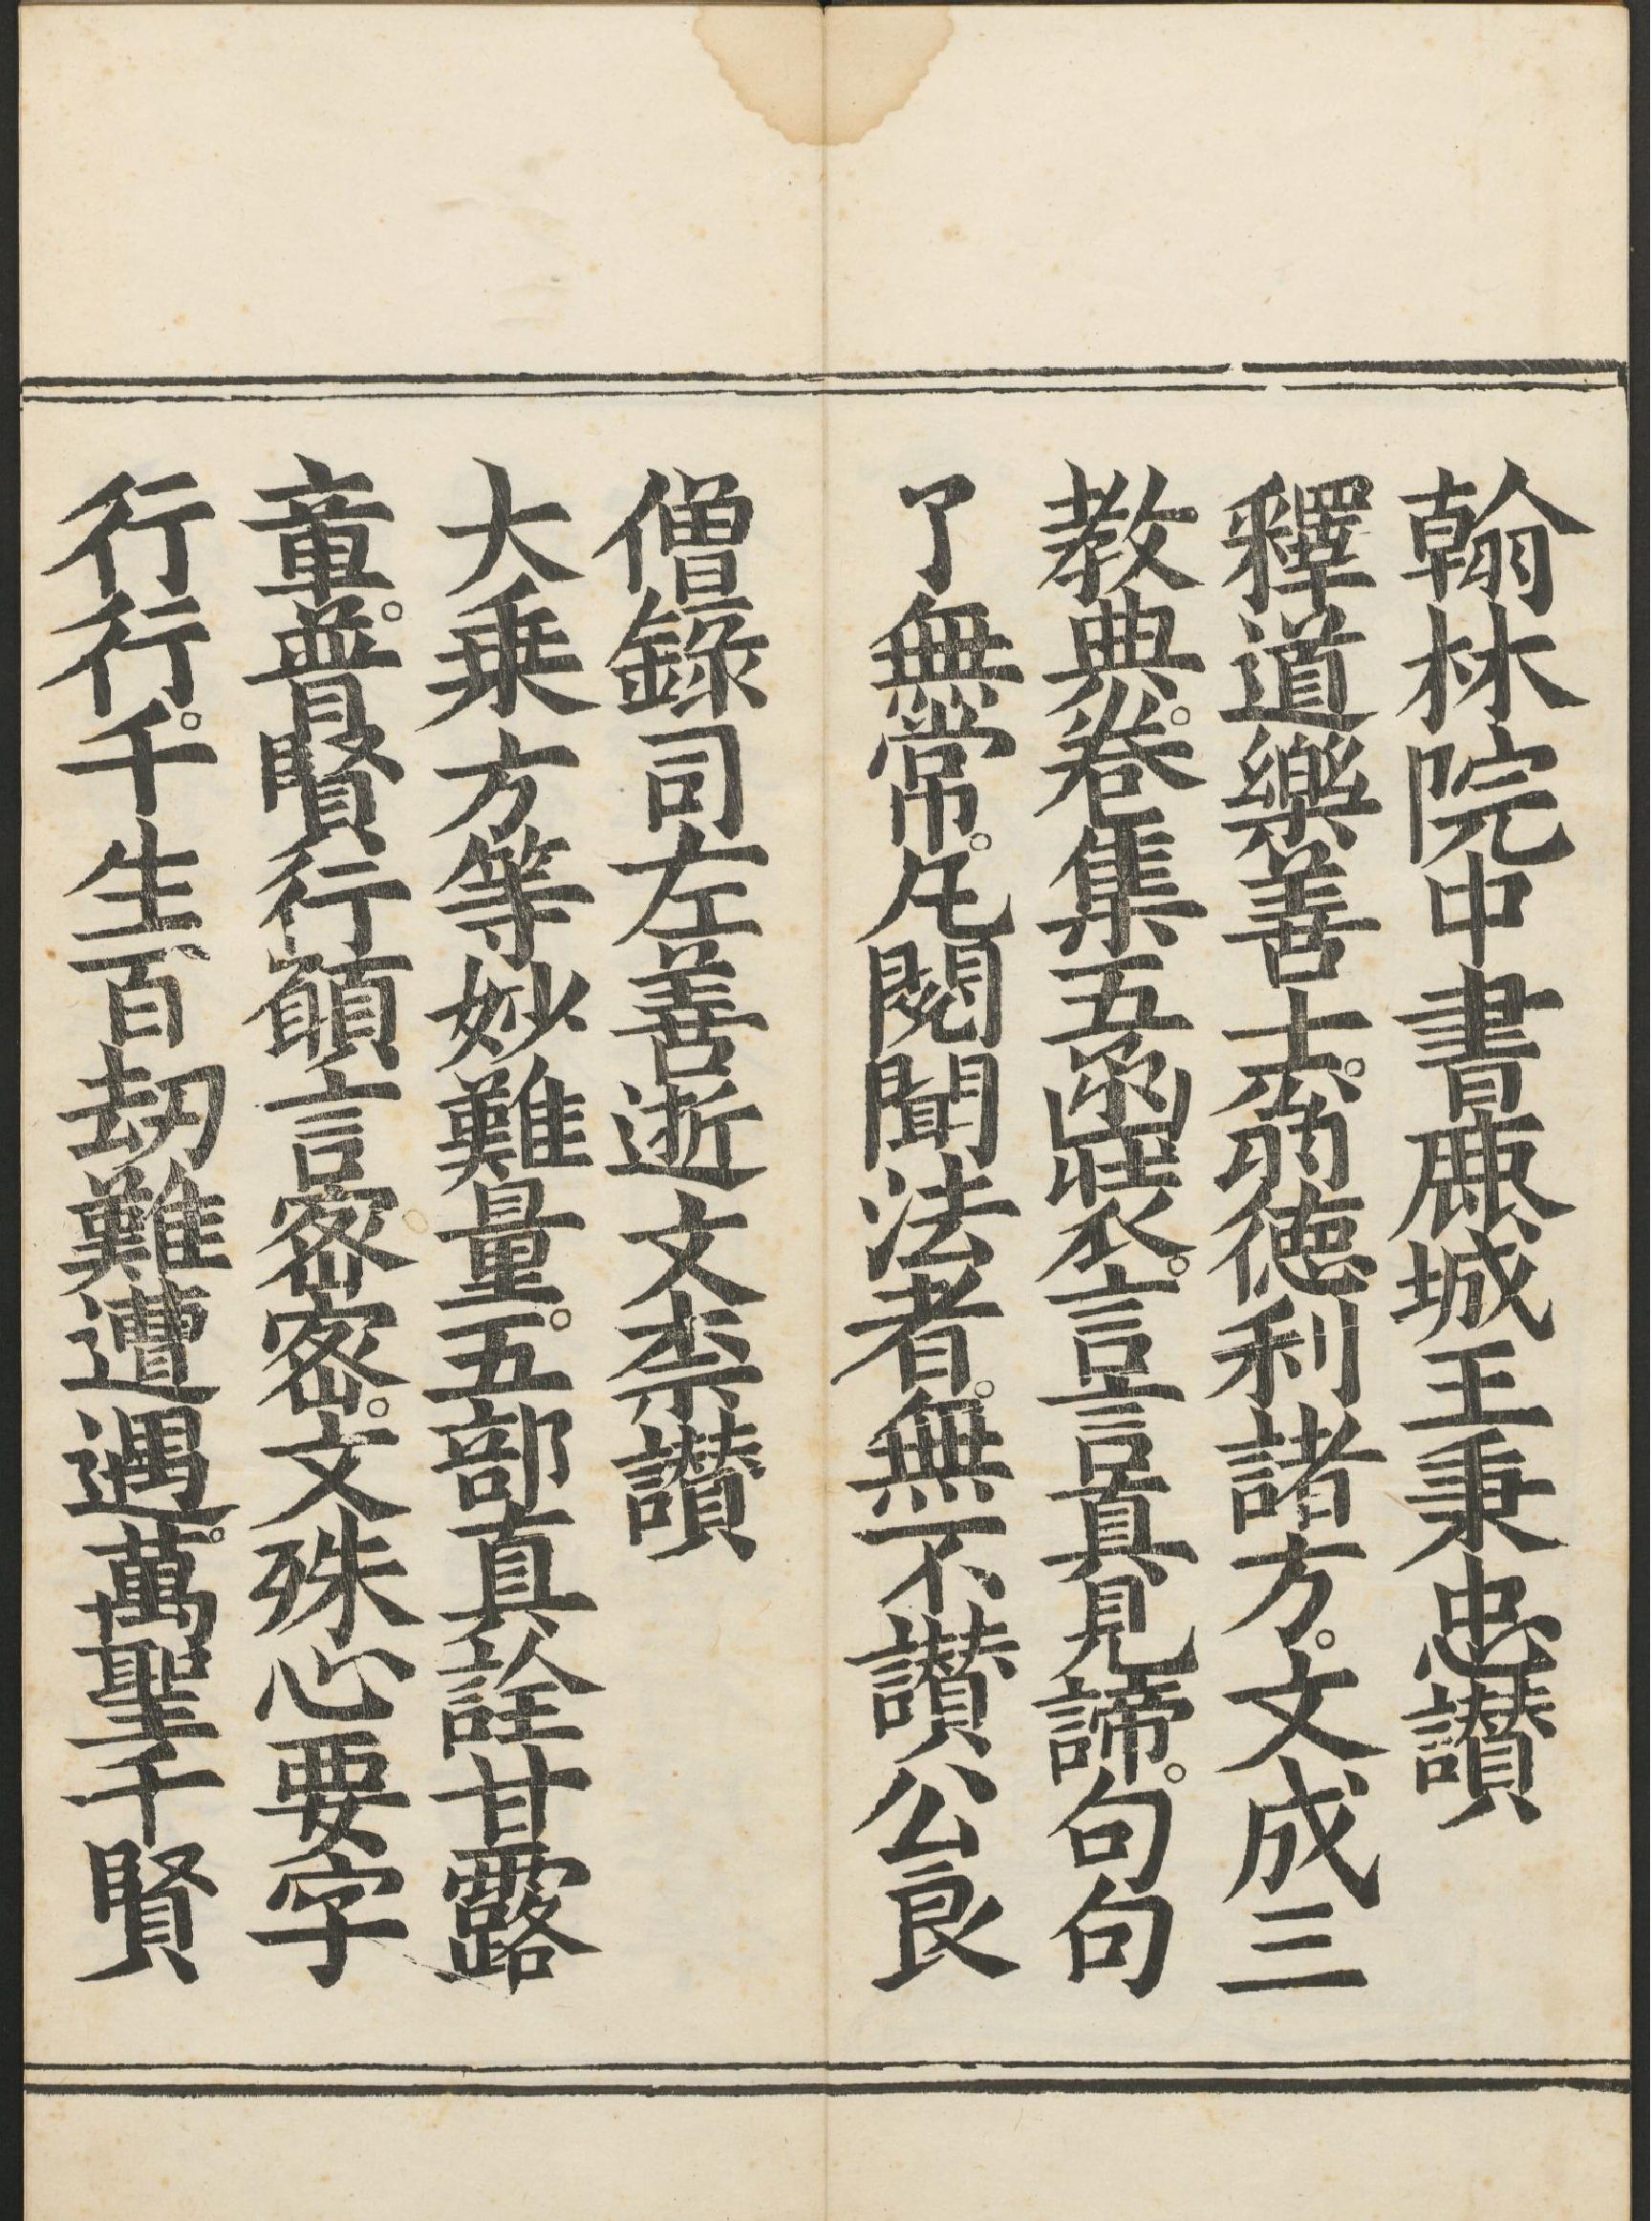 翰林院中書鹿城王秉忠讃
釋道樂善士。翁德利諸方。文成三
教典。卷集五函裝。言言真見諦。句句
了無常。凡閱聞法者。無不讃公良
僧錄司左善逝文柰讃
大乗方等妙難量。五部真詮甘露
童。普賢行願言密密。文殊心要字
行行。千生百劫難遭遇。萬聖千賢